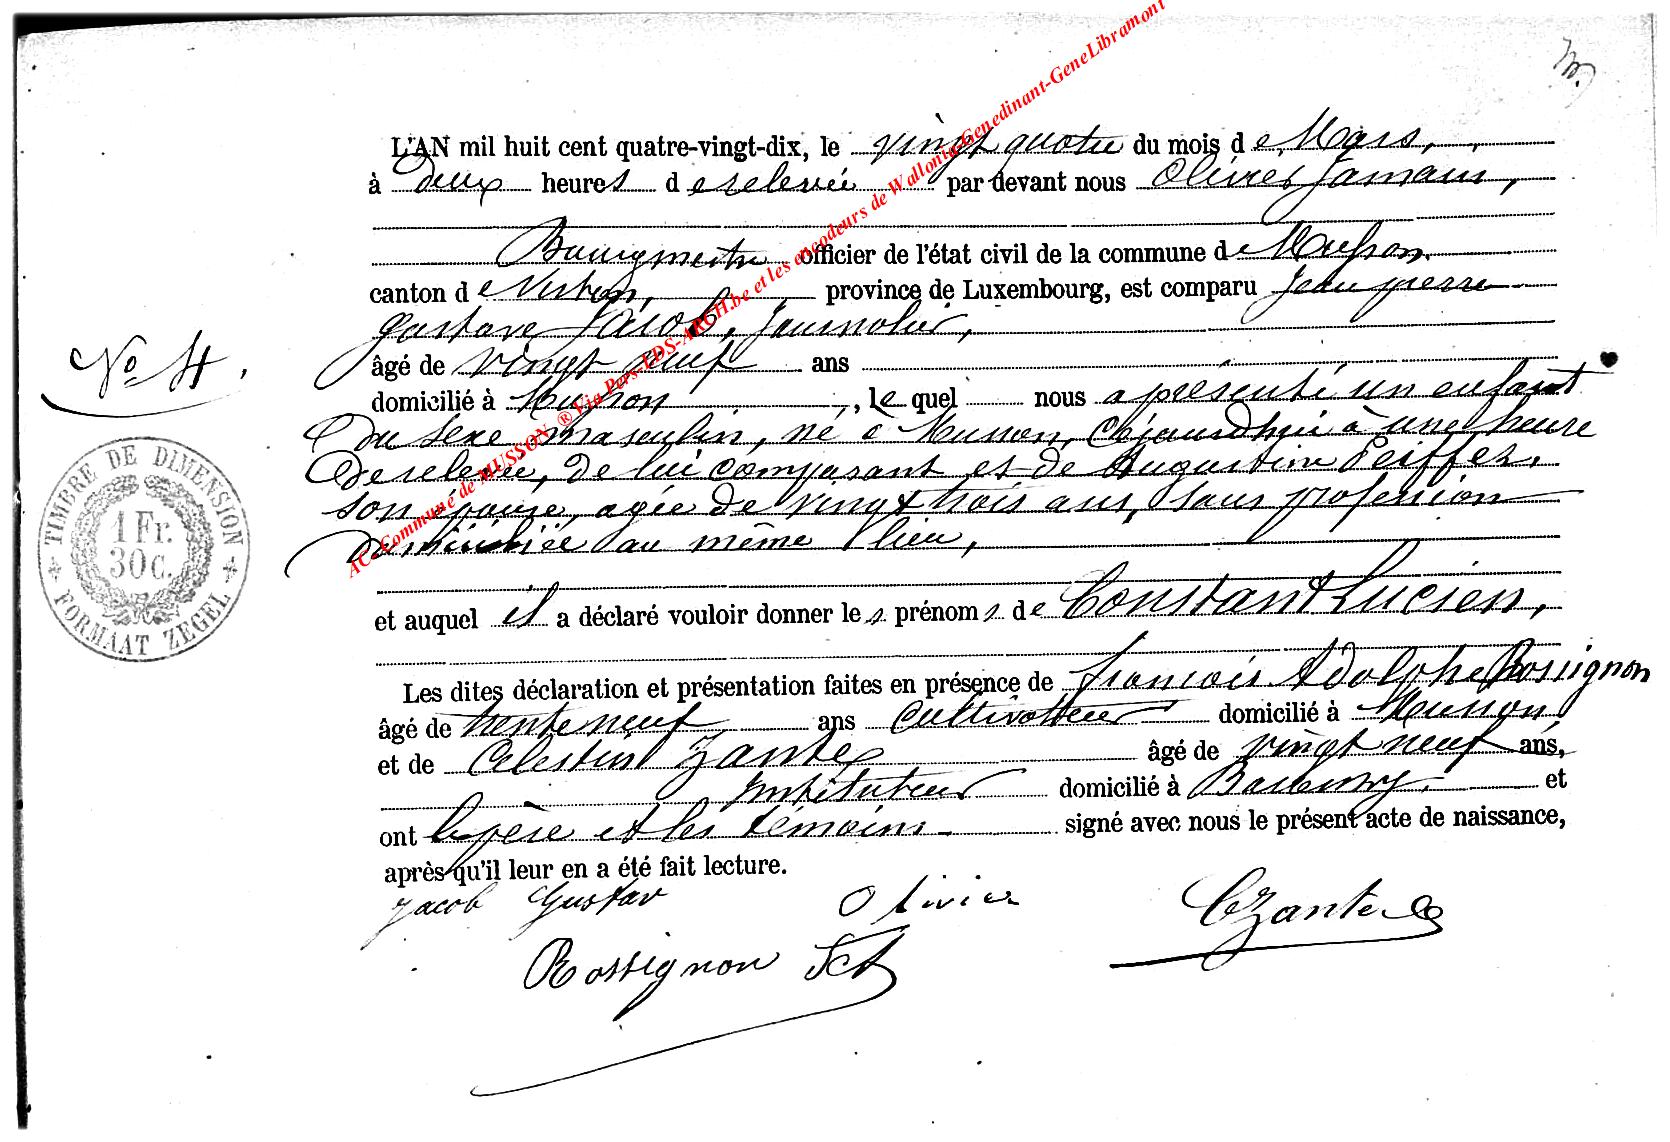 L'AN mil huit cent quatre-vingt-dix, le vingt quatre du mois de Mars,
à deux heures de relevée par devant nous Olivier Jamain,
Bourgmestre officier de l'état civil de la commune de Musson
canton de Virton, province de Luxembourg, est comparu Jean pierre
gustave Jacob, journalier,
No 4.
âgé de vingt neuf ans
domicilié à Musson, le quel nous a présenté un enfant
du sexe masculin, né à Musson, cejourd'hui à une heure
de relevée, de lui comparant et de Augustine Peiffer,
son épouse, agée de vingt trois ans, sans profession
domiciliée au même lieu,
et auquel il a déclaré vouloir donner les prénoms de Constant Lucien,
Les dites déclaration et présentation faites en présence de françois Adolphe Rossignon
âgé de trente neuf ans cultivateur domicilié à Musson,
et de Célestin Zante âgé de vingt neuf ans,
Instituteur domicilié à Baranzy. et
ont le père et les témoins signé avec nous le présent acte de naissance,
après qu'il leur en a été fait lecture.
Jacob Gustav Olivier CZante
Rossignon
TIMBRE DE DIMENSION
1 Fr.
30 C.
FORMAAT ZEGEL
AC-Commune de MUSSON ® Via Pers-LDS-ARCH.be et les encodeurs de Wallonia-Genedinant-GeneLibramont